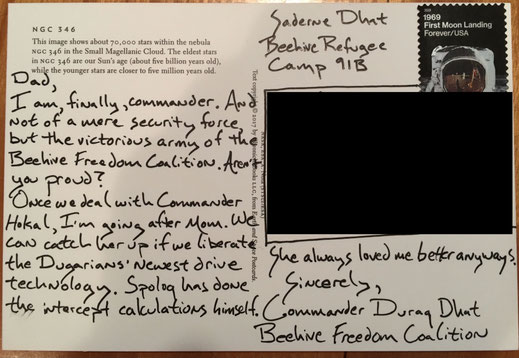 NGC 346
This image shows about 70,000 stars within the nebula
NGC 346 in the Small Magellanic Cloud. The eldest stars
in NGC 346 are our Sun's age (about five billion years old),
while the younger stars are closer to five million years old.
Dad,
I am, finally, commander. And
not of a mere security force,
but the victorious army of the
Beehive Freedom Coalition. Aren't
you proud?
Once we deal with Commander
Hokal, I'm going after Mom. We
can catch her up if we liberate
the Dugarians' newest drive
technology. Spolog has done
the intercept calculations himself.
Text copyright © 2017 by
Postcards
Saderne Dhat
Beehive Refugee
Camp 91B
1969
First Moon Landing
Forever/USA
She always loved me better anyways.
Sincerely,
Commander Duraq Dhat
Beehive Freedom Coalition